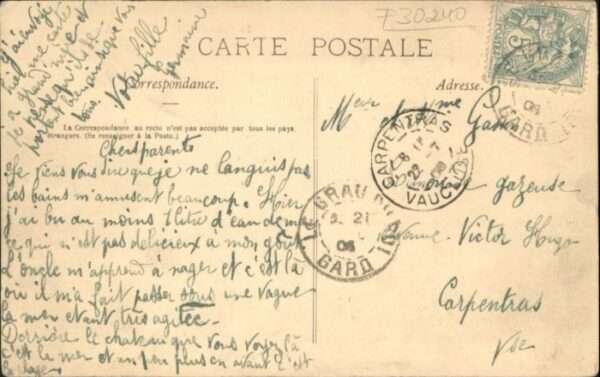 730240
CARTE POSTALE
Correspondance.
Adresse.
La Correspondance au recto n'est pas acceptée par tous les pays
étrangers. (Se renseigner à la Poste.)
Chers parents
Je viens vous dire que je ne languis pas
les bains m'amusent beaucoup. Hier
j'ai bu au moins 1 litre d'eau de mer
ce qui n'est pas délicieux a mon goût
L'oncle m'apprend à nager et c'est là
où il m'a fait passer sous une vague
la mer étant très agitée.
Derrière le chateau que vous voyez là
c'est la mer et un peu plus en avant c'est
la plage
J'ai envoyé
hier une carte
a grand
et
Votre fille
Germaine
gazeuse
Victor Hugo
Carpentras
Vse
CARPENTRAS
VAUCLUSE
LE GRAU DU ROI
21
06
GARD
06
GARD